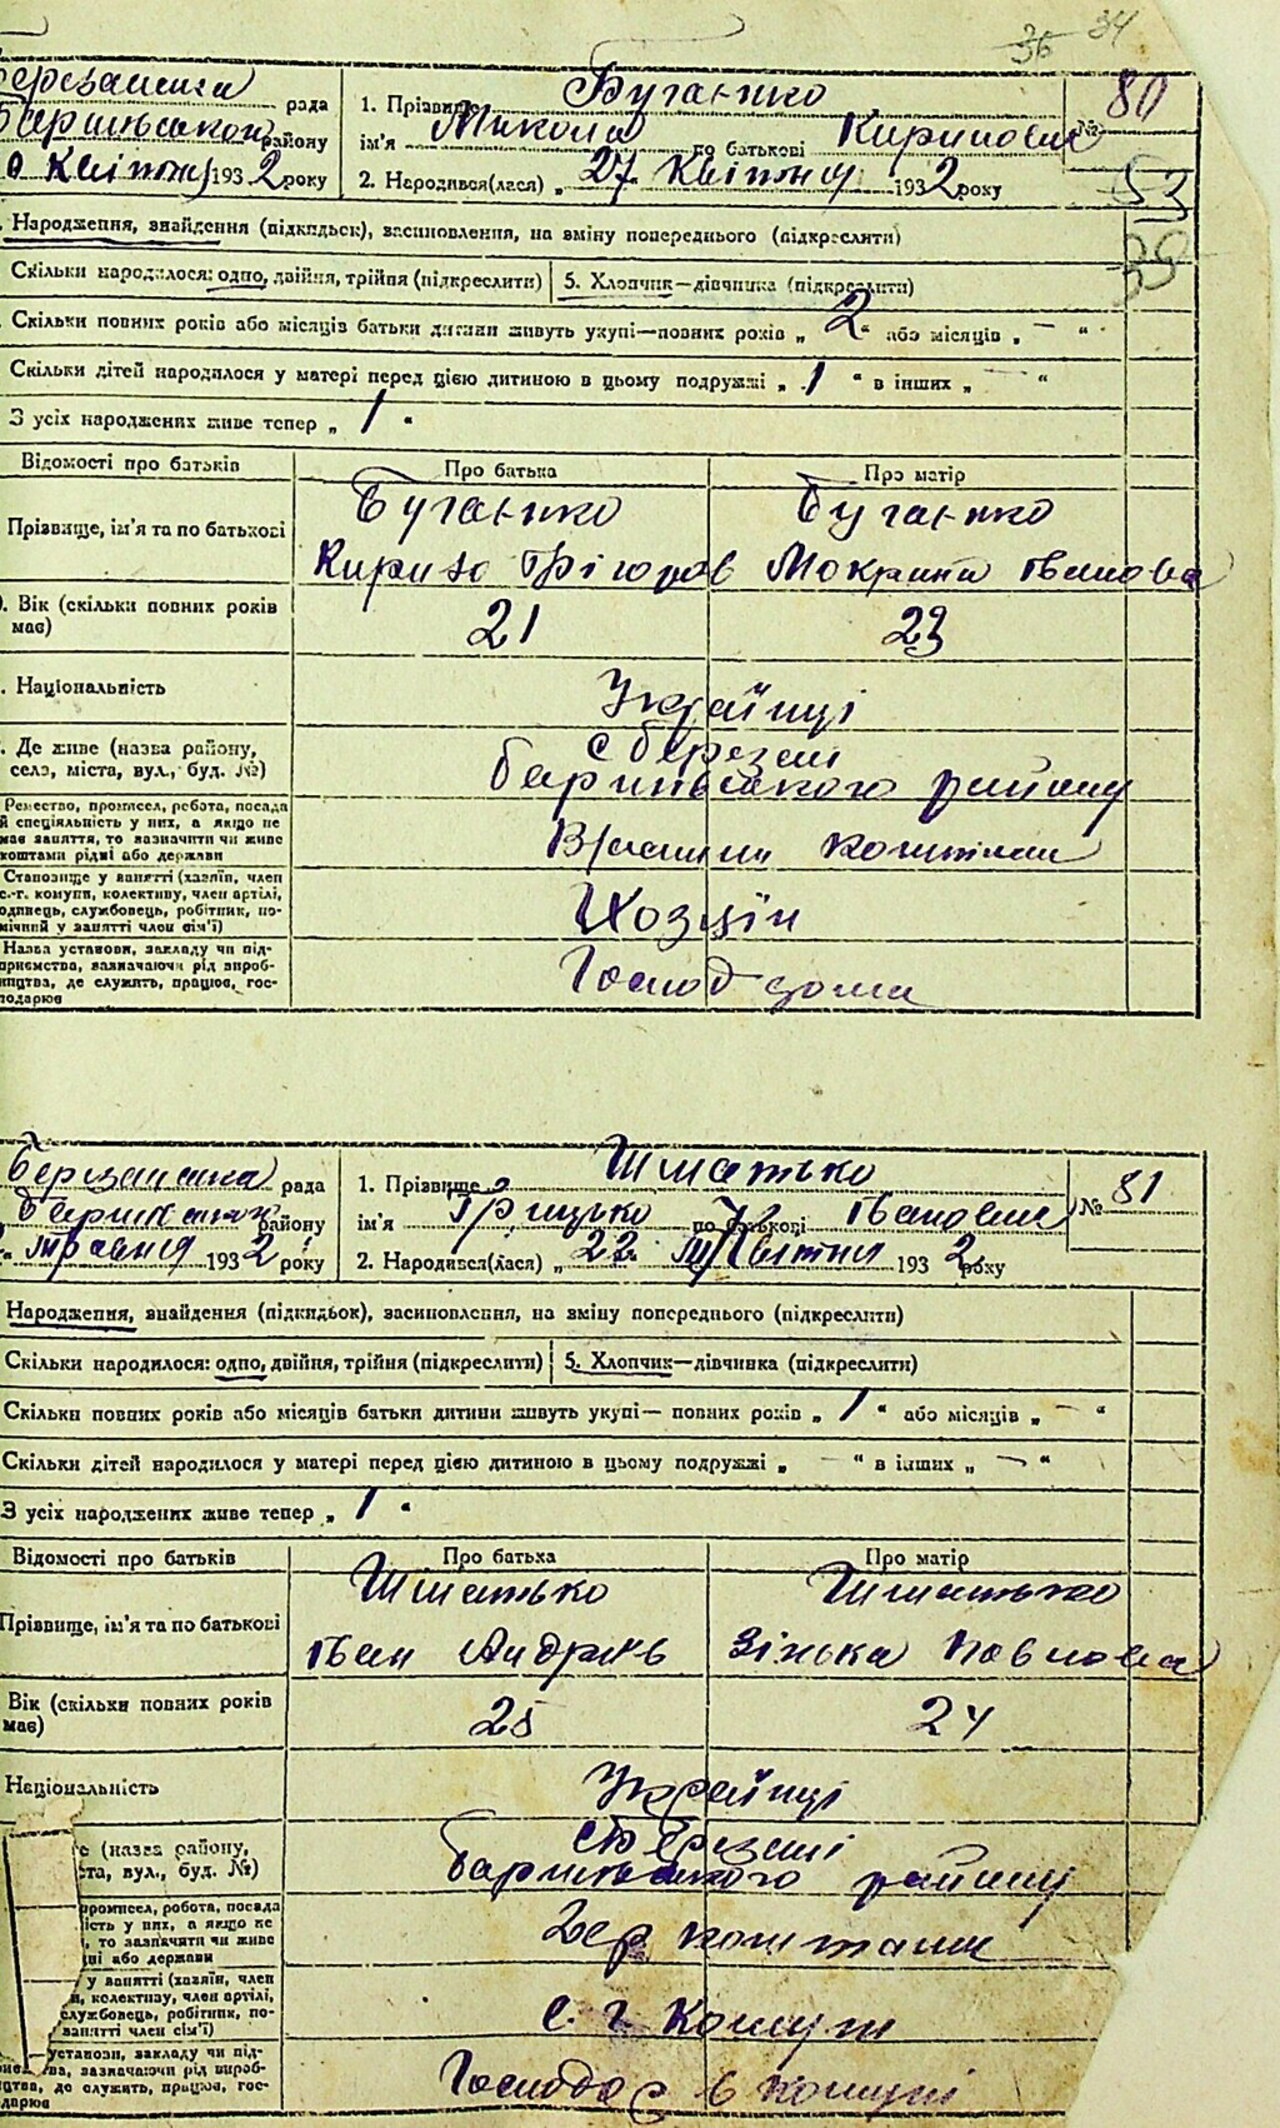 36 34
Березанська рада
1. Прізвище Буганько
№ 80
Баришівської району
ім'я Микола по батькові Кирилович
0 Квітня 1932 року
2. Народився(лася) „ 27 Квітня 1932 року
53
Народження, знайдення (підкидьок), засиновлення, на зміну попереднього (підкреслити)
39
Скільки народилося: одно, двійня, трійня (підкреслити)
5. Хлопчик—дівчинка (підкреслити)
Скільки повних років або місяців батьки дитини живуть укупі—повних років „ 2 “ або місяців „ — “
Скільки дітей народилося у матері перед цією дитиною в цьому подружжі „ 1 “ в інших „ — “
З усіх народжених живе тепер „ 1 “
Відомості про батьків
Про батька
Про матір
Прізвище, ім'я та по батькові
Буганько
Буганько
Кирило Грігоров
Мокрина Іванова
Вік (скільки повних років
має)
21
23
. Національність
Українці
Де живе (назва району,
село, міста, вул., буд. №)
с Березані
Баришівського району
Ремество, промисел, робота, посада
й спеціяльність у них, а якщо не
має заняття, то зазначити чи живе
коштами рідні або держави
Власними коштами
Становище у занятті (хазяїн, член
с.-г. комуни, колективу, член артілі,
одинець, службовець, робітник, по-
мічний у занятті член сім'ї)
Хозяїн
Назва установи, закладу чи під-
приємства, зазначаючи рід вироб-
ництва, де служить, працює, гос-
подарює
Господ дома
Березанська рада
1. Прізвище Шматько
№ 81
району
ім'я Грицько по батькові Іванович
травня 1932 року
2. Народився(лася) „ 22 Квітня 1932 року
Народження, знайдення (підкидьок), засиновлення, на зміну попереднього (підкреслити)
Скільки народилося: одно, двійня, трійня (підкреслити)
5. Хлопчик—дівчинка (підкреслити)
Скільки повних років або місяців батьки дитини живуть укупі— повних років „ 1 “ або місяців „ — “
Скільки дітей народилося у матері перед цією дитиною в цьому подружжі „ — “ в інших „ — “
З усіх народжених живе тепер „ 1 “
Відомості про батьків
Про батька
Про матір
Прізвище, ім'я та по батькові
Шматько
Шматько
Іван Андрієв
Зінька Павлова
Вік (скільки повних років
має)
25
24
Національність
Українці
е (назва району,
ста, вул., буд. №)
с Березані
Баришівського району
промисел, робота, посада
ість у них, а якщо не
, то зазначити чи живе
дні або держави
Дер коштами
у занятті (хазяїн, член
и, колективу, член артілі,
службовець, робітник, по-
занятті член сім'ї)
с. г. комун
установи, закладу чи під-
тва, зазначаючи рід вироб-
цтва, де служить, працює, гос-
дарює
Господар в комуні